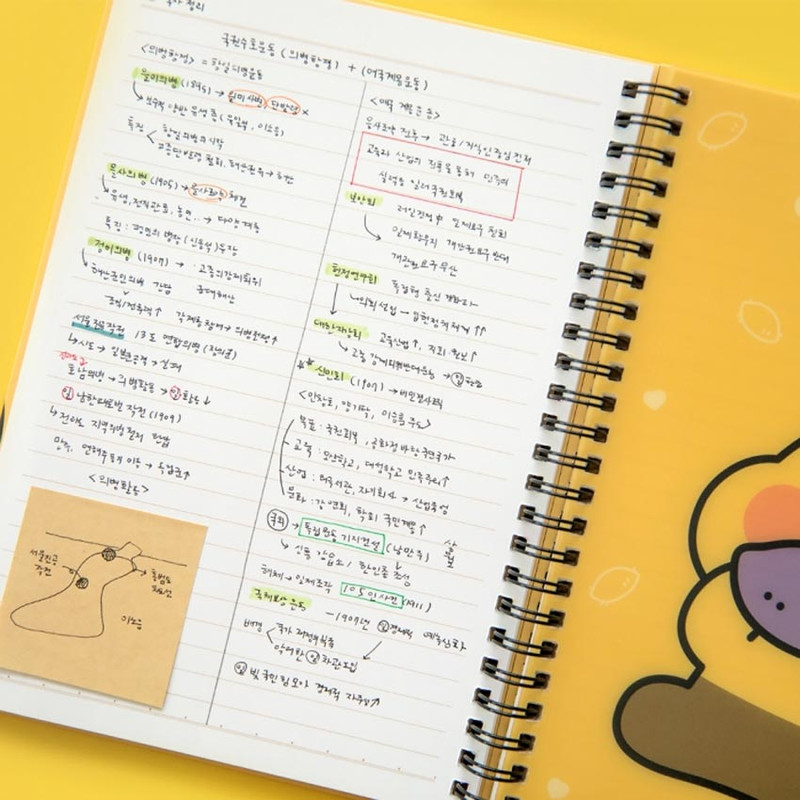 정리
국권수호운동 (의병항쟁) + (애국계몽운동)
<의병항쟁> = 항일의병운동
을미의병 (1895) → 을미사변, 단발령 ×
↳ 보수적 양반 유생층 (유인석, 이소응)
특징 < 항일의병의 시작
고종단발령 철회, 해산권유 → 해산
을사의병 (1905) → 을사조약 체결
↳ 유생, 전직관료, 농민... → 다양계층
특징 : 평민의병장 (신돌석) 등장
정미의병 (1907) → · 고종의강제퇴위
· 군대해산
↳ 해산군인의병 가담
조직/전투력↑
→ 의병전쟁↑
서울진공작전 13도 연합의병 (창의군)
↳ 시도 → 일본군공격 → 실패
호남의병 → 유격활동 → 일 활동↓
일 남한대토벌 작전 (1909)
↳ 전라도 지역의병
만주, 연해주로 이동 → 독립군↑
<의병활동>
서울진공
작전
홍범도
이소응
<애국계몽운동>
을사조약 전후 → 관료/지식인중심전개
교육과 산업의 진흥을 통해 민족의
실력을 길러국권회복
보안회
일제 황무지 개간권요구 반대
개간권요구
헌정연구회 독립협 출신
↳ 의회설립 → 입헌정치체제 ↑↑
대한자강회 교육산업↑, 지회
↳ 고종 강제퇴위반대운동 → 일
신민회 (1907) → 비밀결사조직
<안창호, 양기탁, 이승훈 주도>
목표 : 국권회복, 공화정 바탕 국민국가
교육 : 오산학교, 대성학교 민족주의↑
산업 : 태극서관, 자기회사 → 산업육성
문화 : 강연회, 학회 국민계몽↑
국외 → 독립운동 기지건설 (남만주) 삼원보
↳ 신흥 강습소 / 한인촌 조성
해체 → 일제조작 105인사건 (1911)
국채보상운동 - 1907년 일 경제적 예속심화
배경 < 국가 재정의부족
막대한 일 차관도입
일 빚 국민 힘 모아 경제적 자주성↗